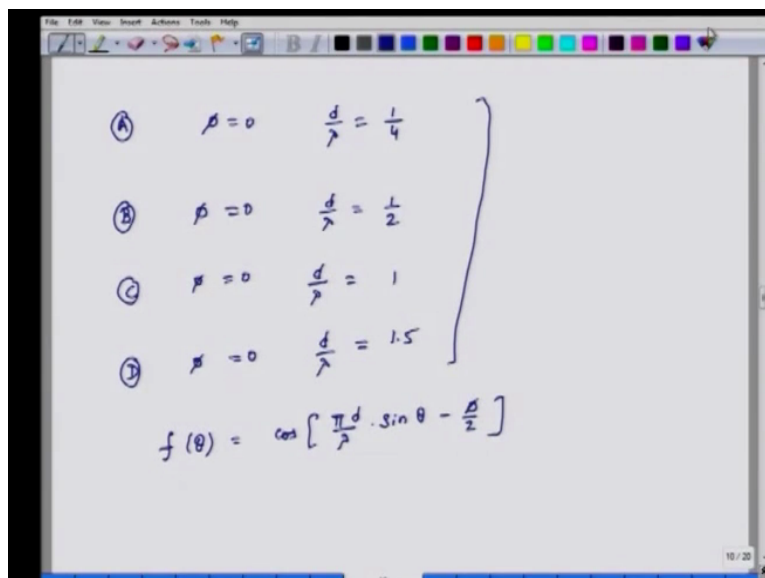 File Edit View Insert Actions Tools Help
B I
Ⓐ φ = 0 d/λ = 1/4
Ⓑ φ = 0 d/λ = 1/2
Ⓒ φ = 0 d/λ = 1
Ⓓ φ = 0 d/λ = 1.5
f(θ) = cos[πd/λ . sin θ - φ/2]
10 / 20